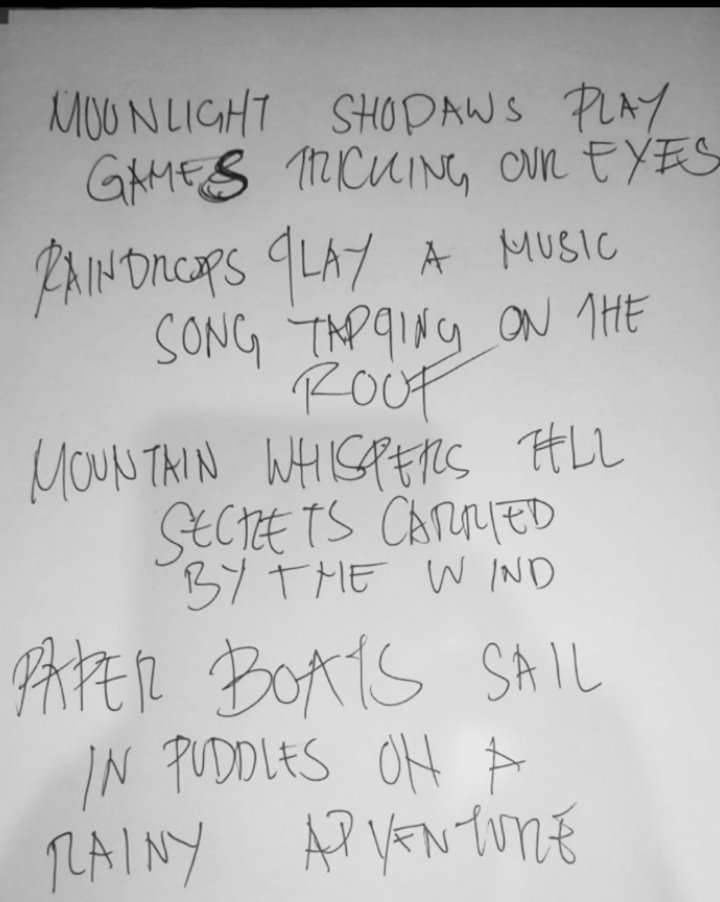 MOONLIGHT SHODAWS PLAY
GAMES TRICKING OUR EYES
RAINDROPS PLAY A MUSIC
SONG TAPPING ON THE
ROOF
MOUNTAIN WHISPERS TELL
SECRETS CARRIED
BY THE WIND
PAPER BOATS SAIL
IN PUDDLES ON A
RAINY ADVENTURE